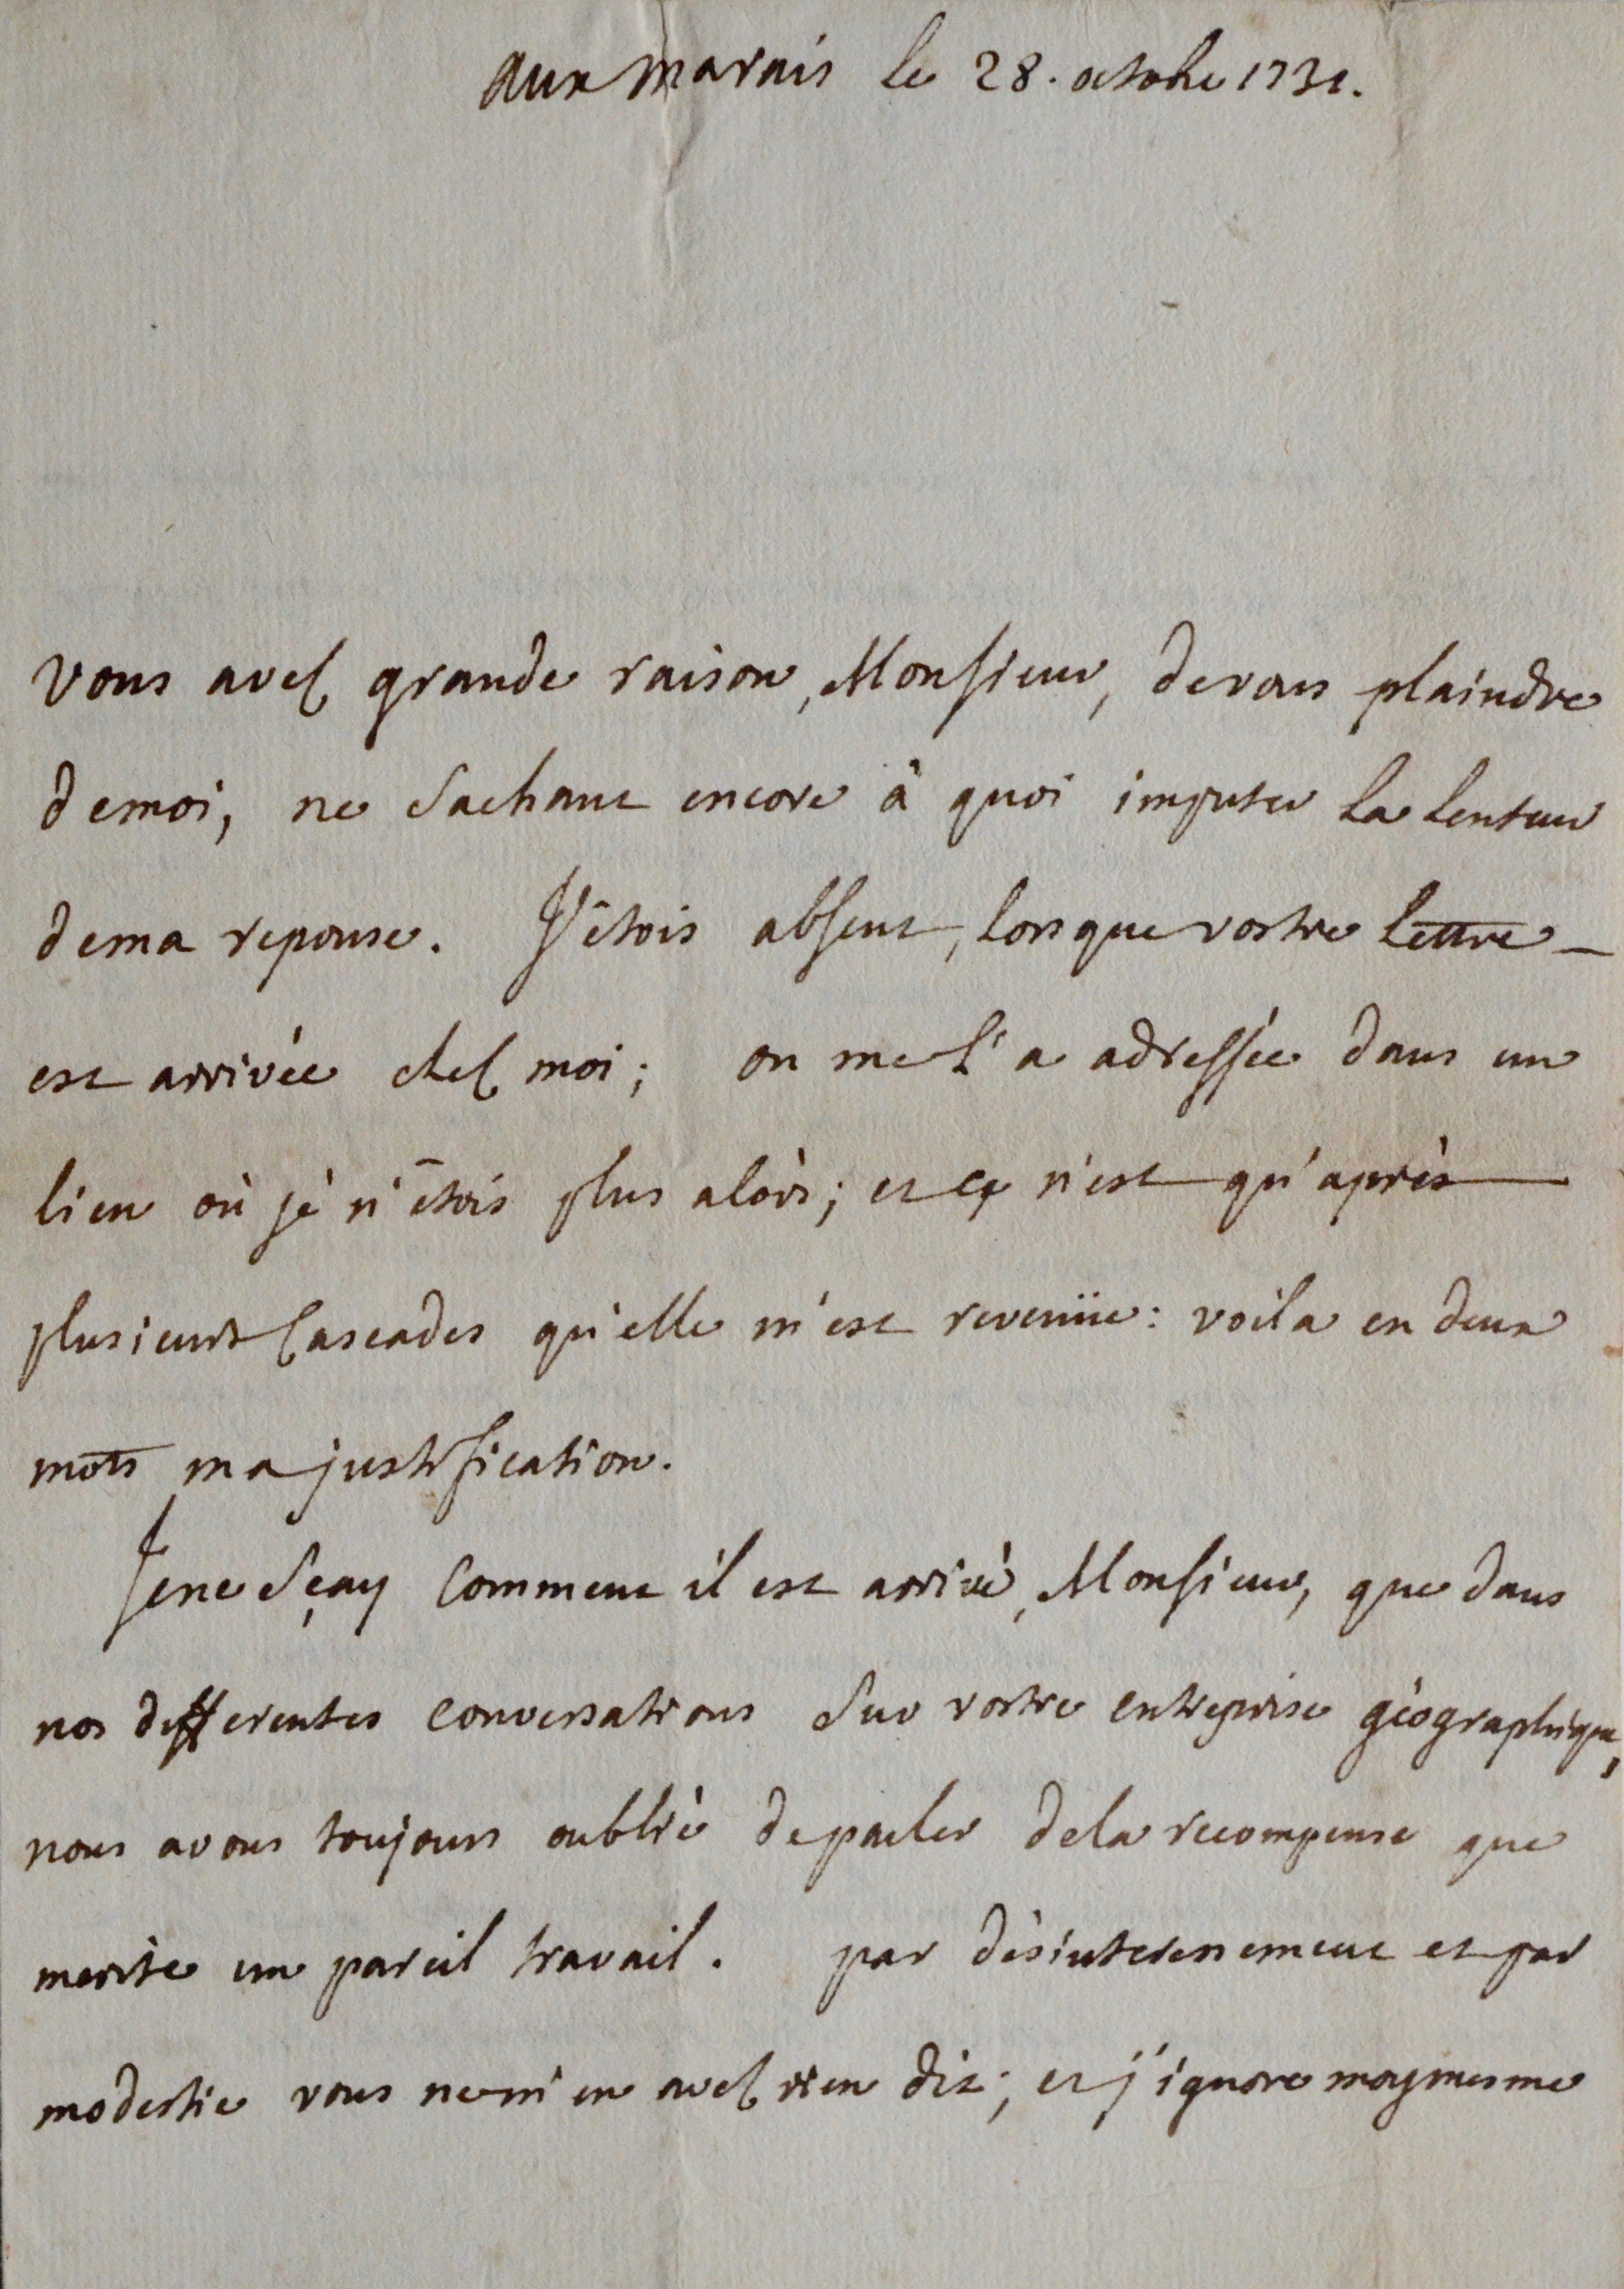 aux marais le 28. octobre 1731.
vous avez grande raison, Monsieur, de vous plaindre
de moi, ne sachant encore à quoi imputer la lenteur
de ma reponse. J'étois absent, lorsque vostre lettre
est arrivée chez moi; on me l'a adressée dans un
lieu où je n'étois plus alors; et ce n'est qu'après
plusieurs cascades qu'elle m'est revenüe: voila en deux
mots ma justification.
Je ne sçay comment il est arrivé, Monsieur, que dans
nos differentes conversations sur vostre entreprise géographique,
nous avons toujours oublié de parler de la recompense que
merite un pareil travail. par désinteressement et par
modestie vous ne m'en avez rien dit; et j'ignore moymesme